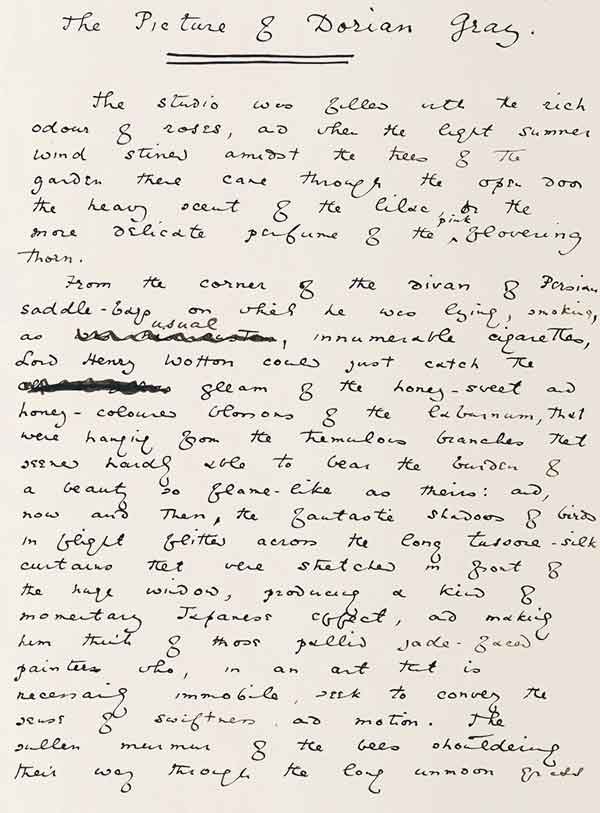 The Picture of Dorian Gray.
The studio was filled with the rich
odour of roses, and when the light summer
wind stirred amidst the trees of the
garden there came through the open door
the heavy scent of the lilac, or the
more delicate perfume of the pink flowering
thorn.
From the corner of the divan of Persian
saddle-bags on which he was lying, smoking,
as usual, innumerable cigarettes,
Lord Henry Wotton could just catch the
gleam of the honey-sweet and
honey-coloured blossoms of the laburnum, that
were hanging from the tremulous branches that
seemed hardly able to bear the burden of
a beauty so flame-like as theirs: and,
now and then, the fantastic shadows of birds
in flight flitted across the long tussore-silk
curtains that were stretched in front of
the huge window, producing a kind of
momentary Japanese effect, and making
him think of those pallid jade-faced
painters who, in an art that is
necessarily immobile, seek to convey the
sense of swiftness and motion. The
sullen murmur of the bees shouldering
their way through the long unmown grass